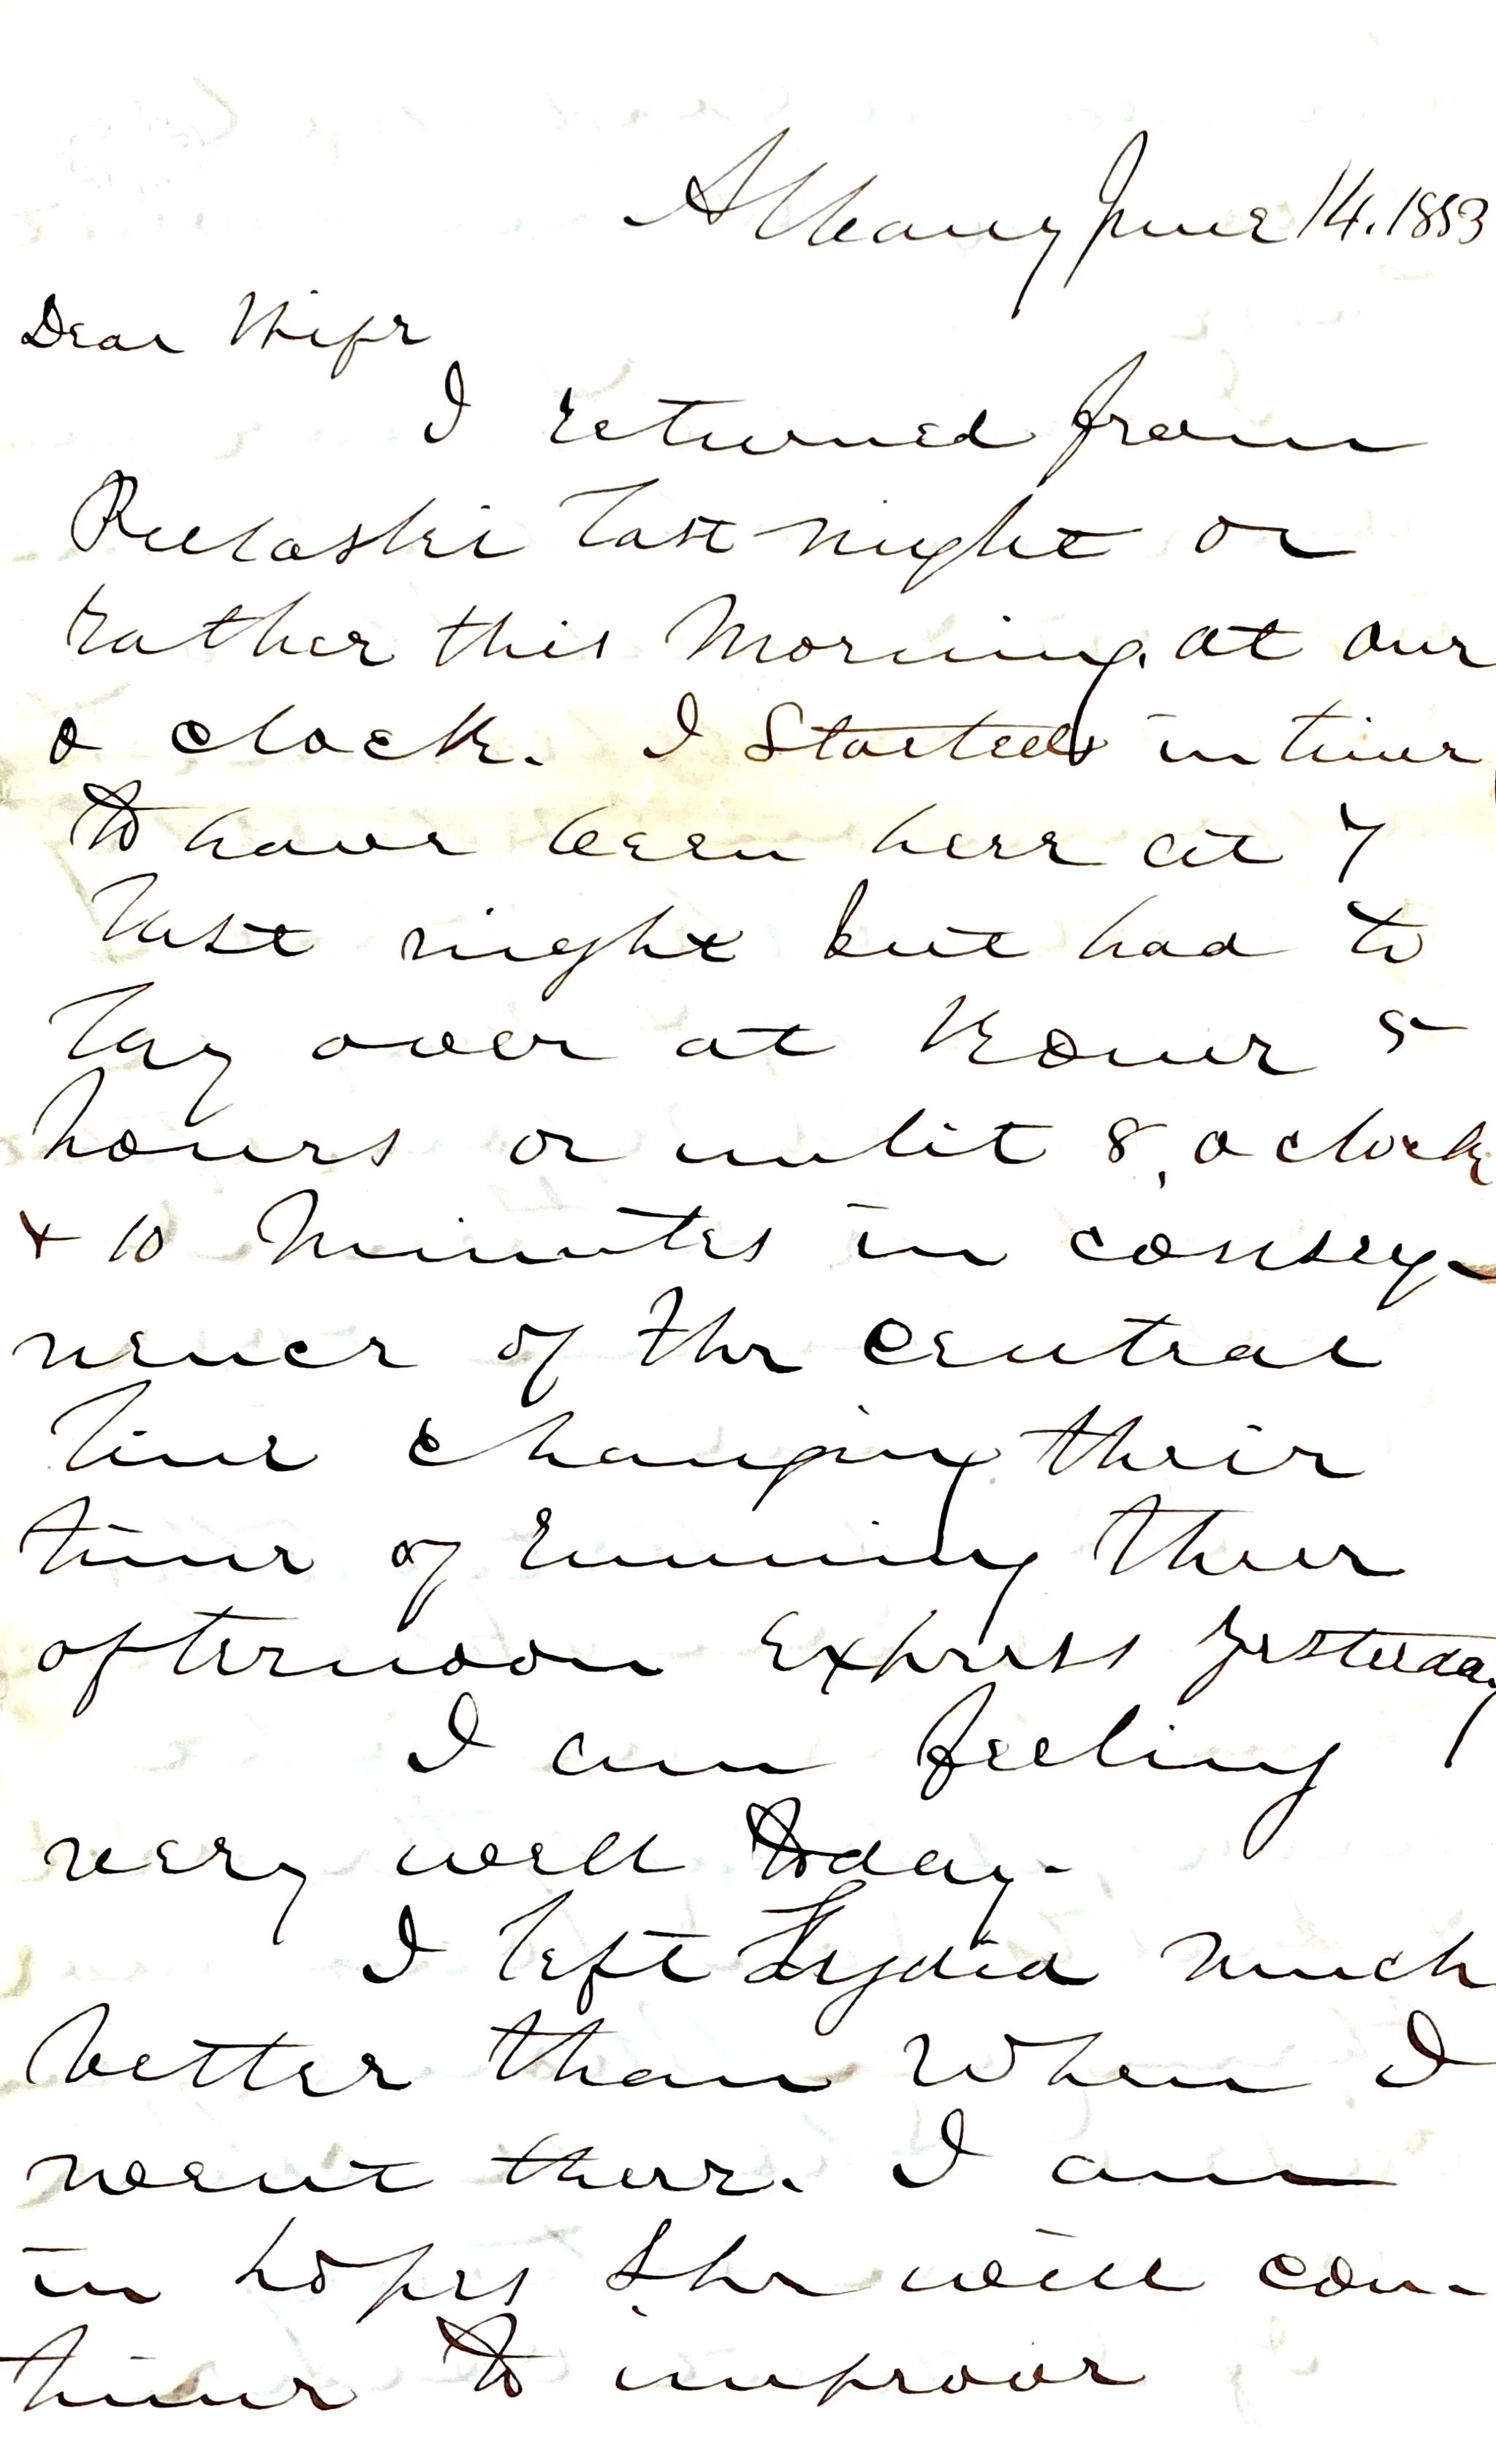 Albany June 14. 1853
Dear Wife
I returned from
Pulaski last night or
rather this Morning. at one
o clock. I Started in time
to have been here at 7
last night but had to
lay over at Rome 5
hours or until 8, o clock
+ 10 Minutes in conseq-
uence of the Central
line changing their
time of running their
afternoon Express yesterday
I am feeling
very well today-
I left Lydia much
better than When I
went there. I am
in hopes She will con-
tinue to improve